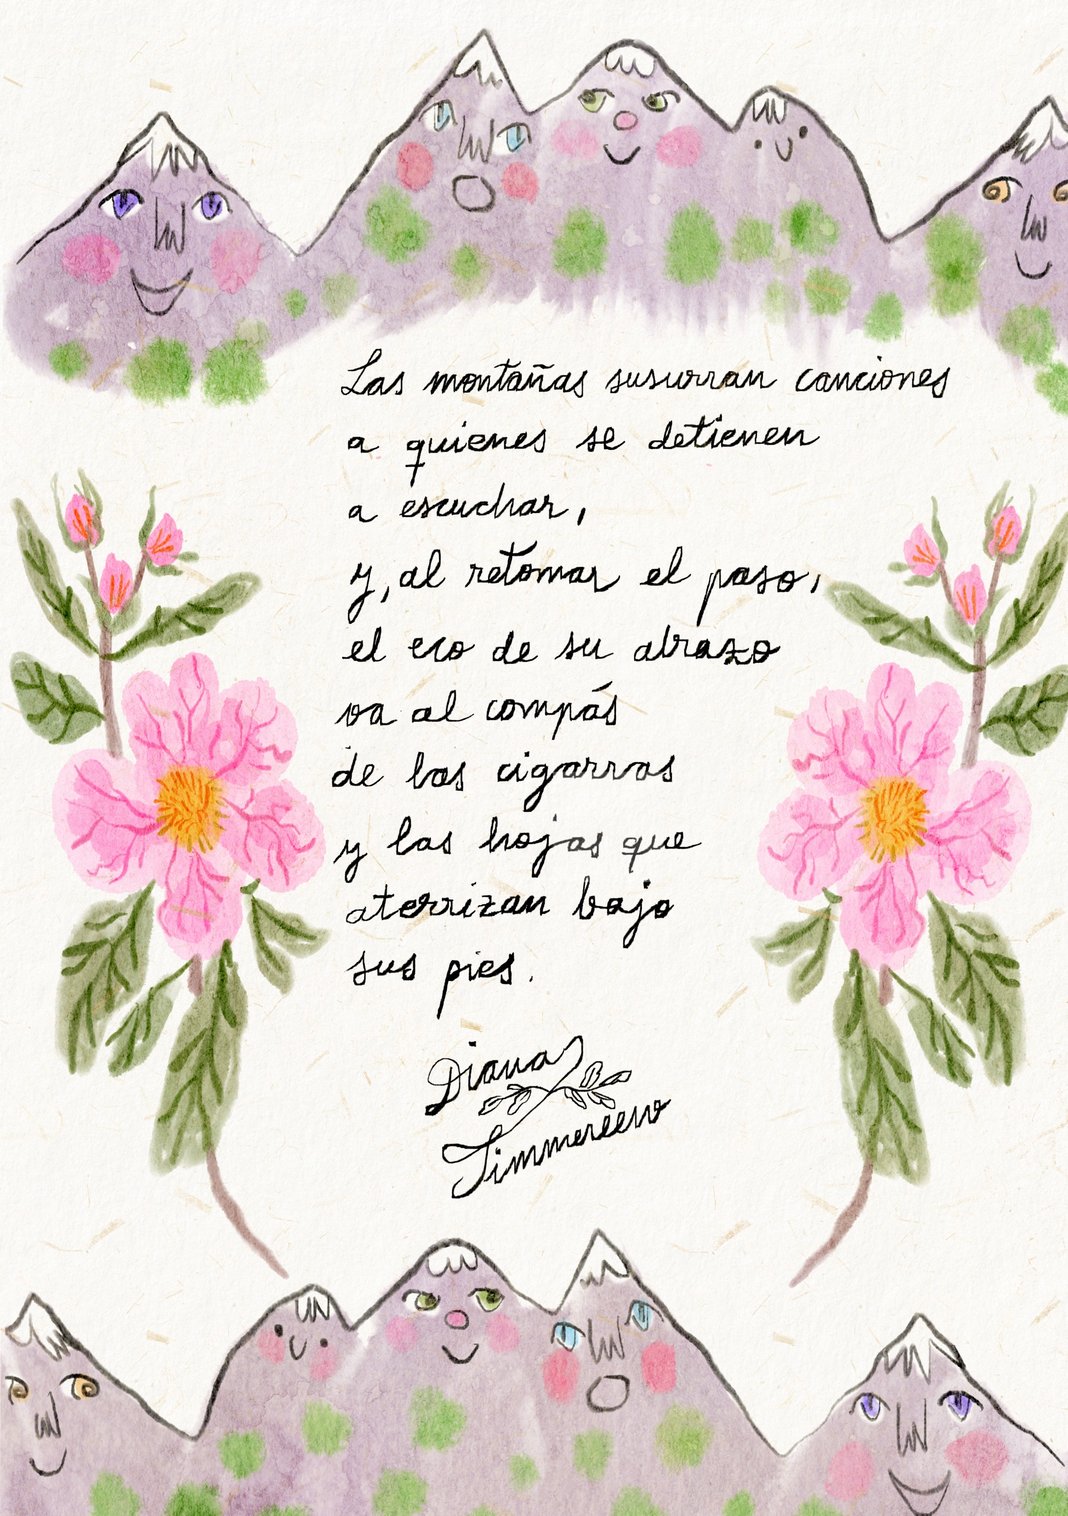 Las montañas susurran canciones
a quienes se detienen
a escuchar,
y, al retomar el paso,
el eco de su abrazo
va al compás
de las cigarras
y las hojas que
aterrizan bajo
sus pies.
Diana